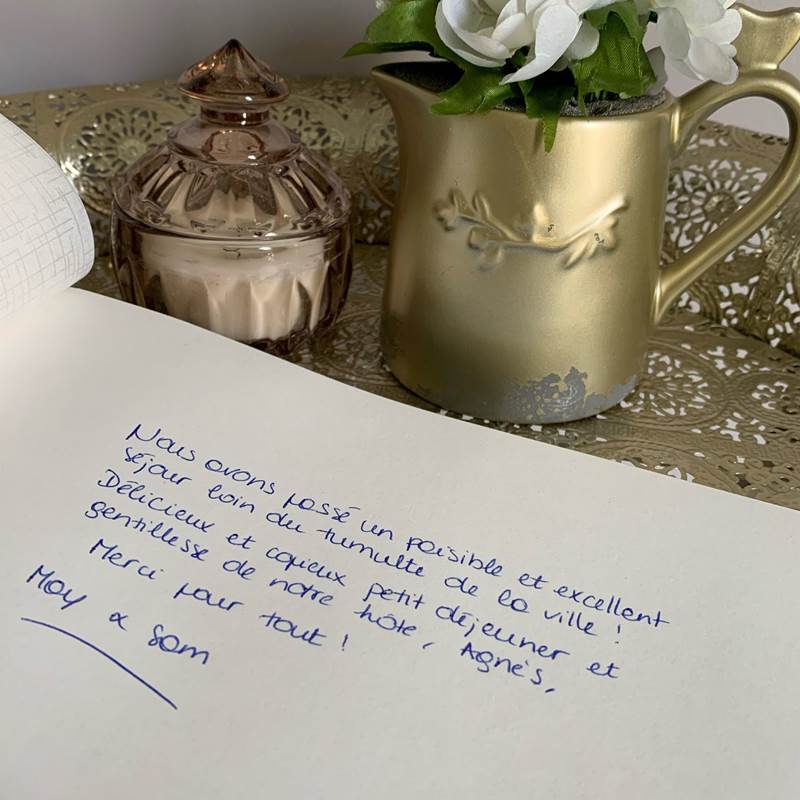 Nous avons passé un paisible et excellent
séjour loin du tumulte de la ville !
Délicieux et copieux petit déjeuner et
gentillesse de notre hôte, Agnès.
Merci pour tout !
May & Sam